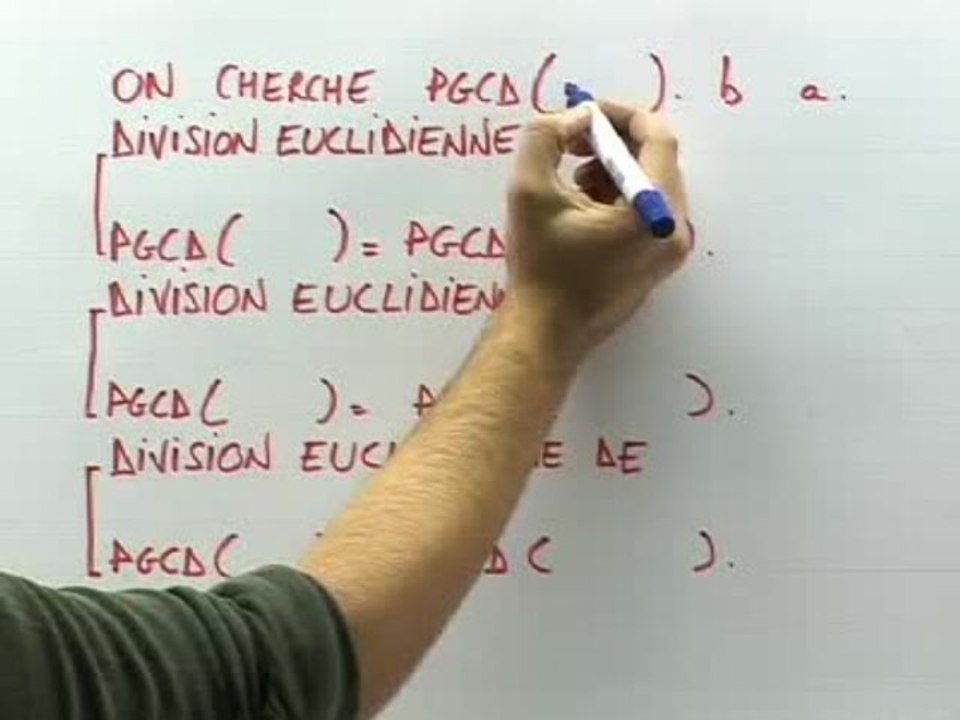 ON CHERCHE PGCD( ). b a.
DIVISION EUCLIDIENNE
PGCD( ) = PGCD ).
DIVISION EUCLIDIEN
PGCD( ) = P ).
DIVISION EUC E DE
PGCD( D( ).